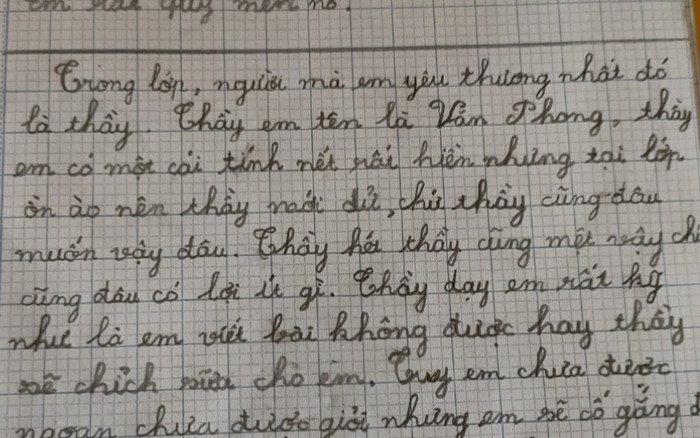 em rất quý mến nó.
Trong lớp, người mà em yêu thương nhất đó
là thầy. Thầy em tên là Văn Phong, thầy
em có một cái tính nết rất hiền nhưng tại lớp
ồn ào nên thầy mới dữ, chứ thầy cũng đâu
muốn vậy đâu. Thầy hét thầy cũng mệt vậy chứ
cũng đâu có lợi ít gì. Thầy dạy em rất kỹ
như là em viết bài không được hay thầy
sẽ chỉch sửa cho em. Tuy em chưa được
ngoan chưa được giỏi nhưng em sẽ cố gắng